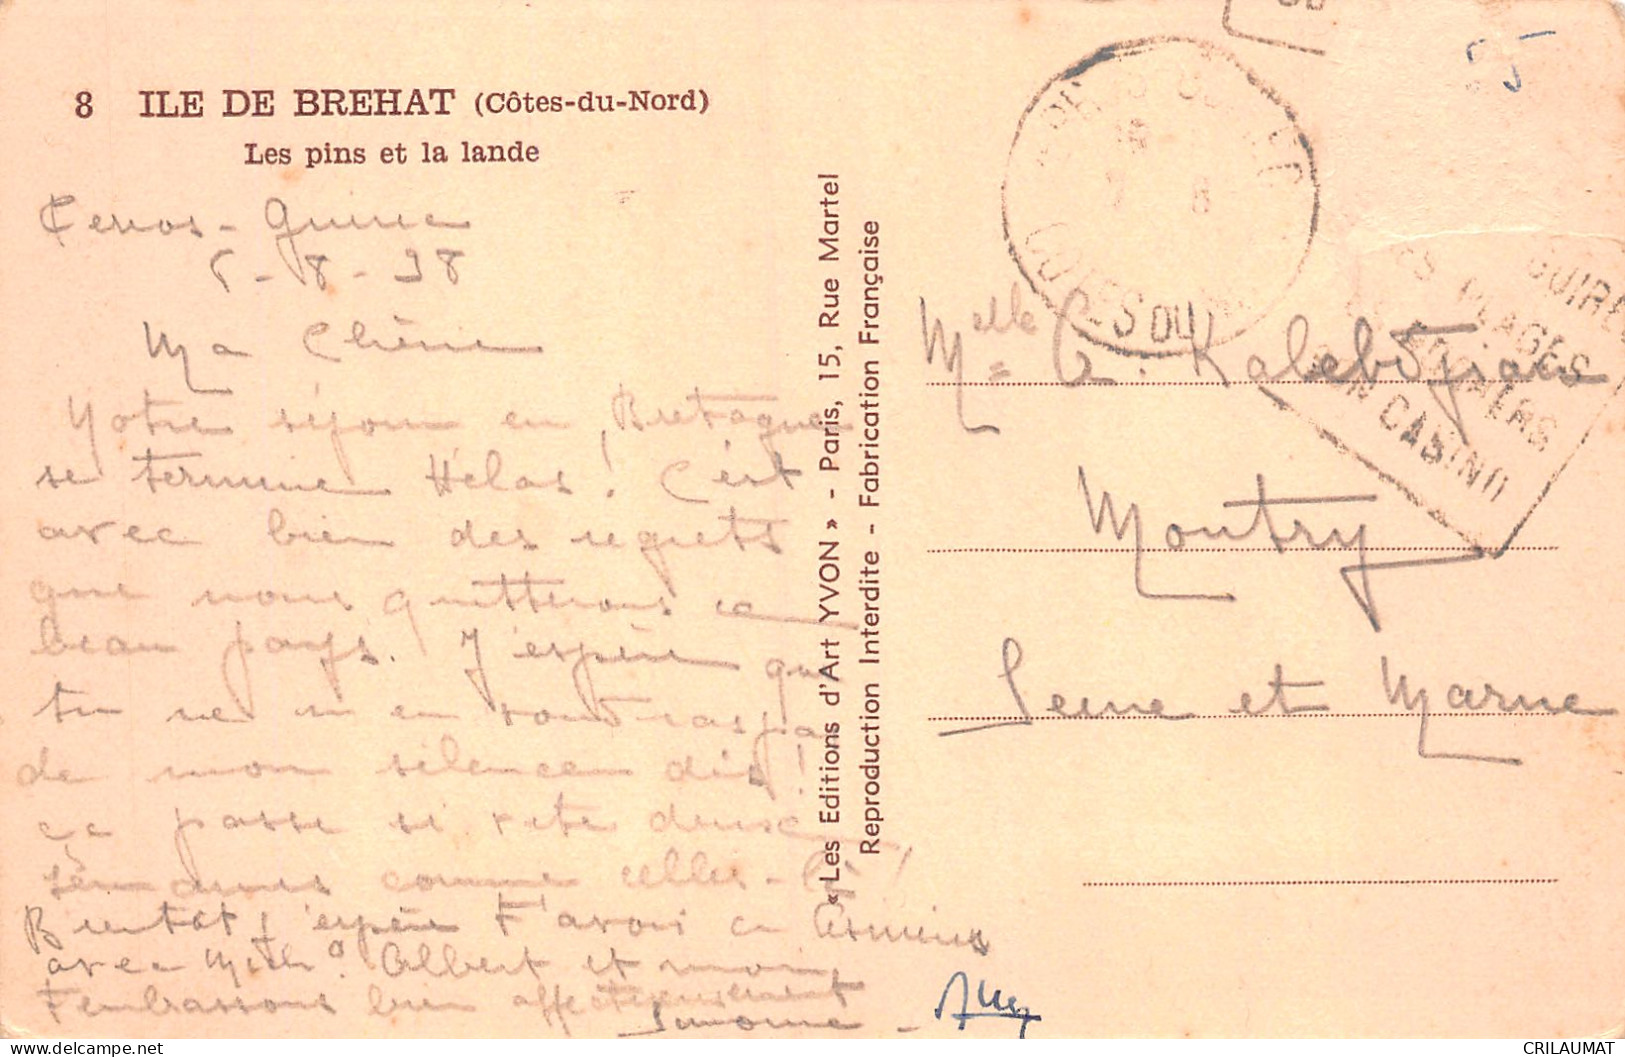 8 ILE DE BREHAT (Côtes-du-Nord)
Les pins et la lande
Perros - Guirec
5 - 8 - 38
Ma Chérie
Notre séjour en Bretagne
se termine Hélas ! C'est
avec bien des regrets
que nous quitterons ce
beau pays. J'espère que
tu ne m'en voudras pas
de mon silence
ça passe si vite deux
semaines comme celles-là !
Bientôt j'espère t'avoir
avec Albert et moi
t'embrassons bien affectueusement
Simone -
« Les Editions d'Art YVON » - Paris, 15, Rue Martel
Reproduction Interdite - Fabrication Française
COTES DU
7 8
GUIREC
SES PLAGES
SES ROCHERS
SON CASINO
Melle G.
Montry
Seine et Marne
CRILAUMAT